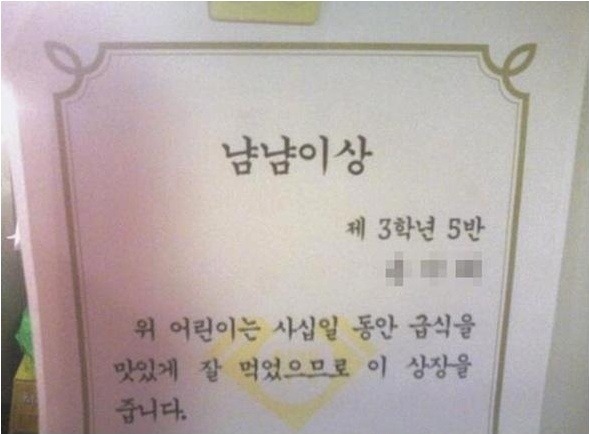 냠냠이상
제 3학년 5반
위 어린이는 사십일 동안 급식을
맛있게 잘 먹었으므로 이 상장을
줍니다.